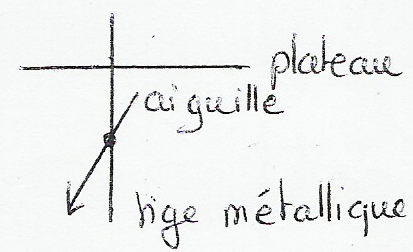 plateau
aiguille
tige métallique